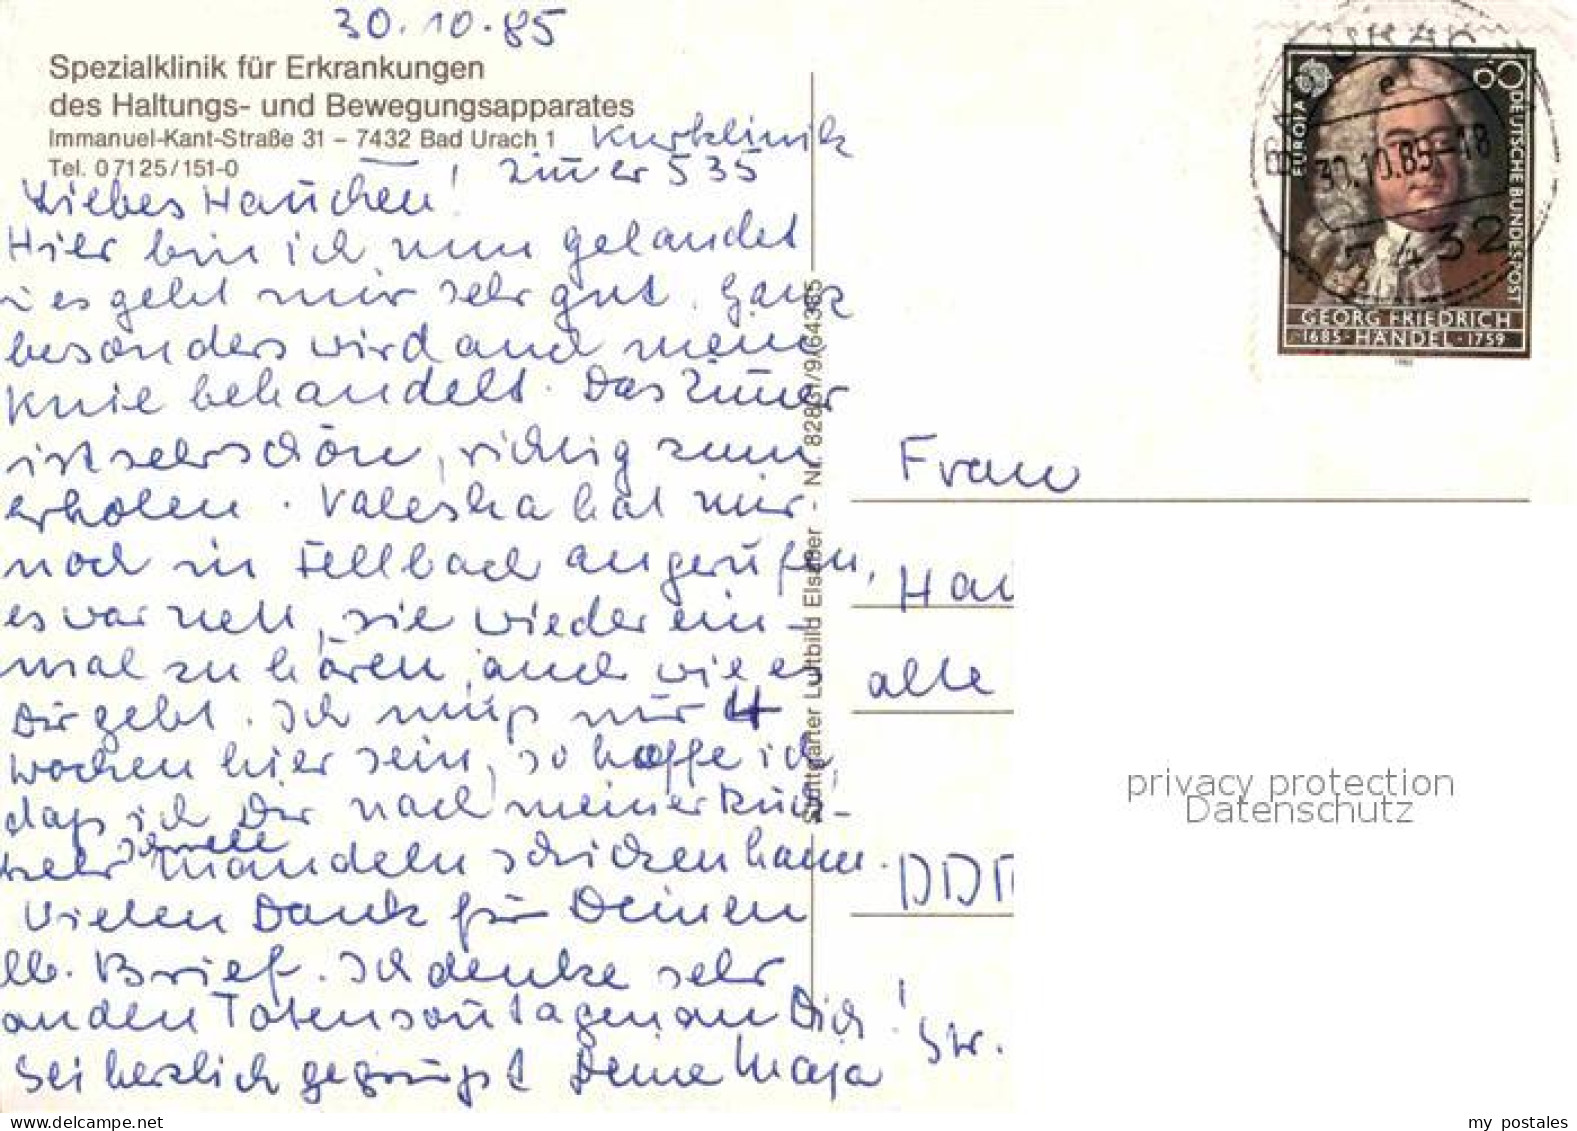 30.10.85
Spezialklinik für Erkrankungen
des Haltungs- und Bewegungsapparates
Immanuel-Kant-Straße 31 – 7432 Bad Urach 1 Kurklinik
Tel. 0 7125/151-0 Zim̅er 535
Liebes Han̅chen!
Hier bin ich nun gelandet
es geht mir sehr gut. Ganz
besonders wird auch mein
Knie behandelt. Das Zim̅er
ist sehr schön, richtig zum
erholen. Valeska hat mir
noch in Fellbach angerufen,
es war nett, sie wieder ein-
mal zu hören, auch wie es
Dir geht. Ich muß nur 4
Wochen hier sein, so hoffe ich,
daß ich Dir nach meiner Rück-
kehr schnell Mandeln schicken kann.
Vielen Dank für Deinen
lb. Brief. Ich denke sehr
an den Totensonntagen an Dich!
Sei herzlich gegrüßt Deine Maja
Stuttgarter Luftbild Elsäßer - Nr. 82831/9/64385
BAD URACH 1
e
30.10.85-18
7432
EUROPA
80
DEUTSCHE BUNDESPOST
GEORG FRIEDRICH
1685·HÄNDEL·1759
1985
Frau
Han
alte
DDR
Str.
privacy protection
Datenschutz
my postales